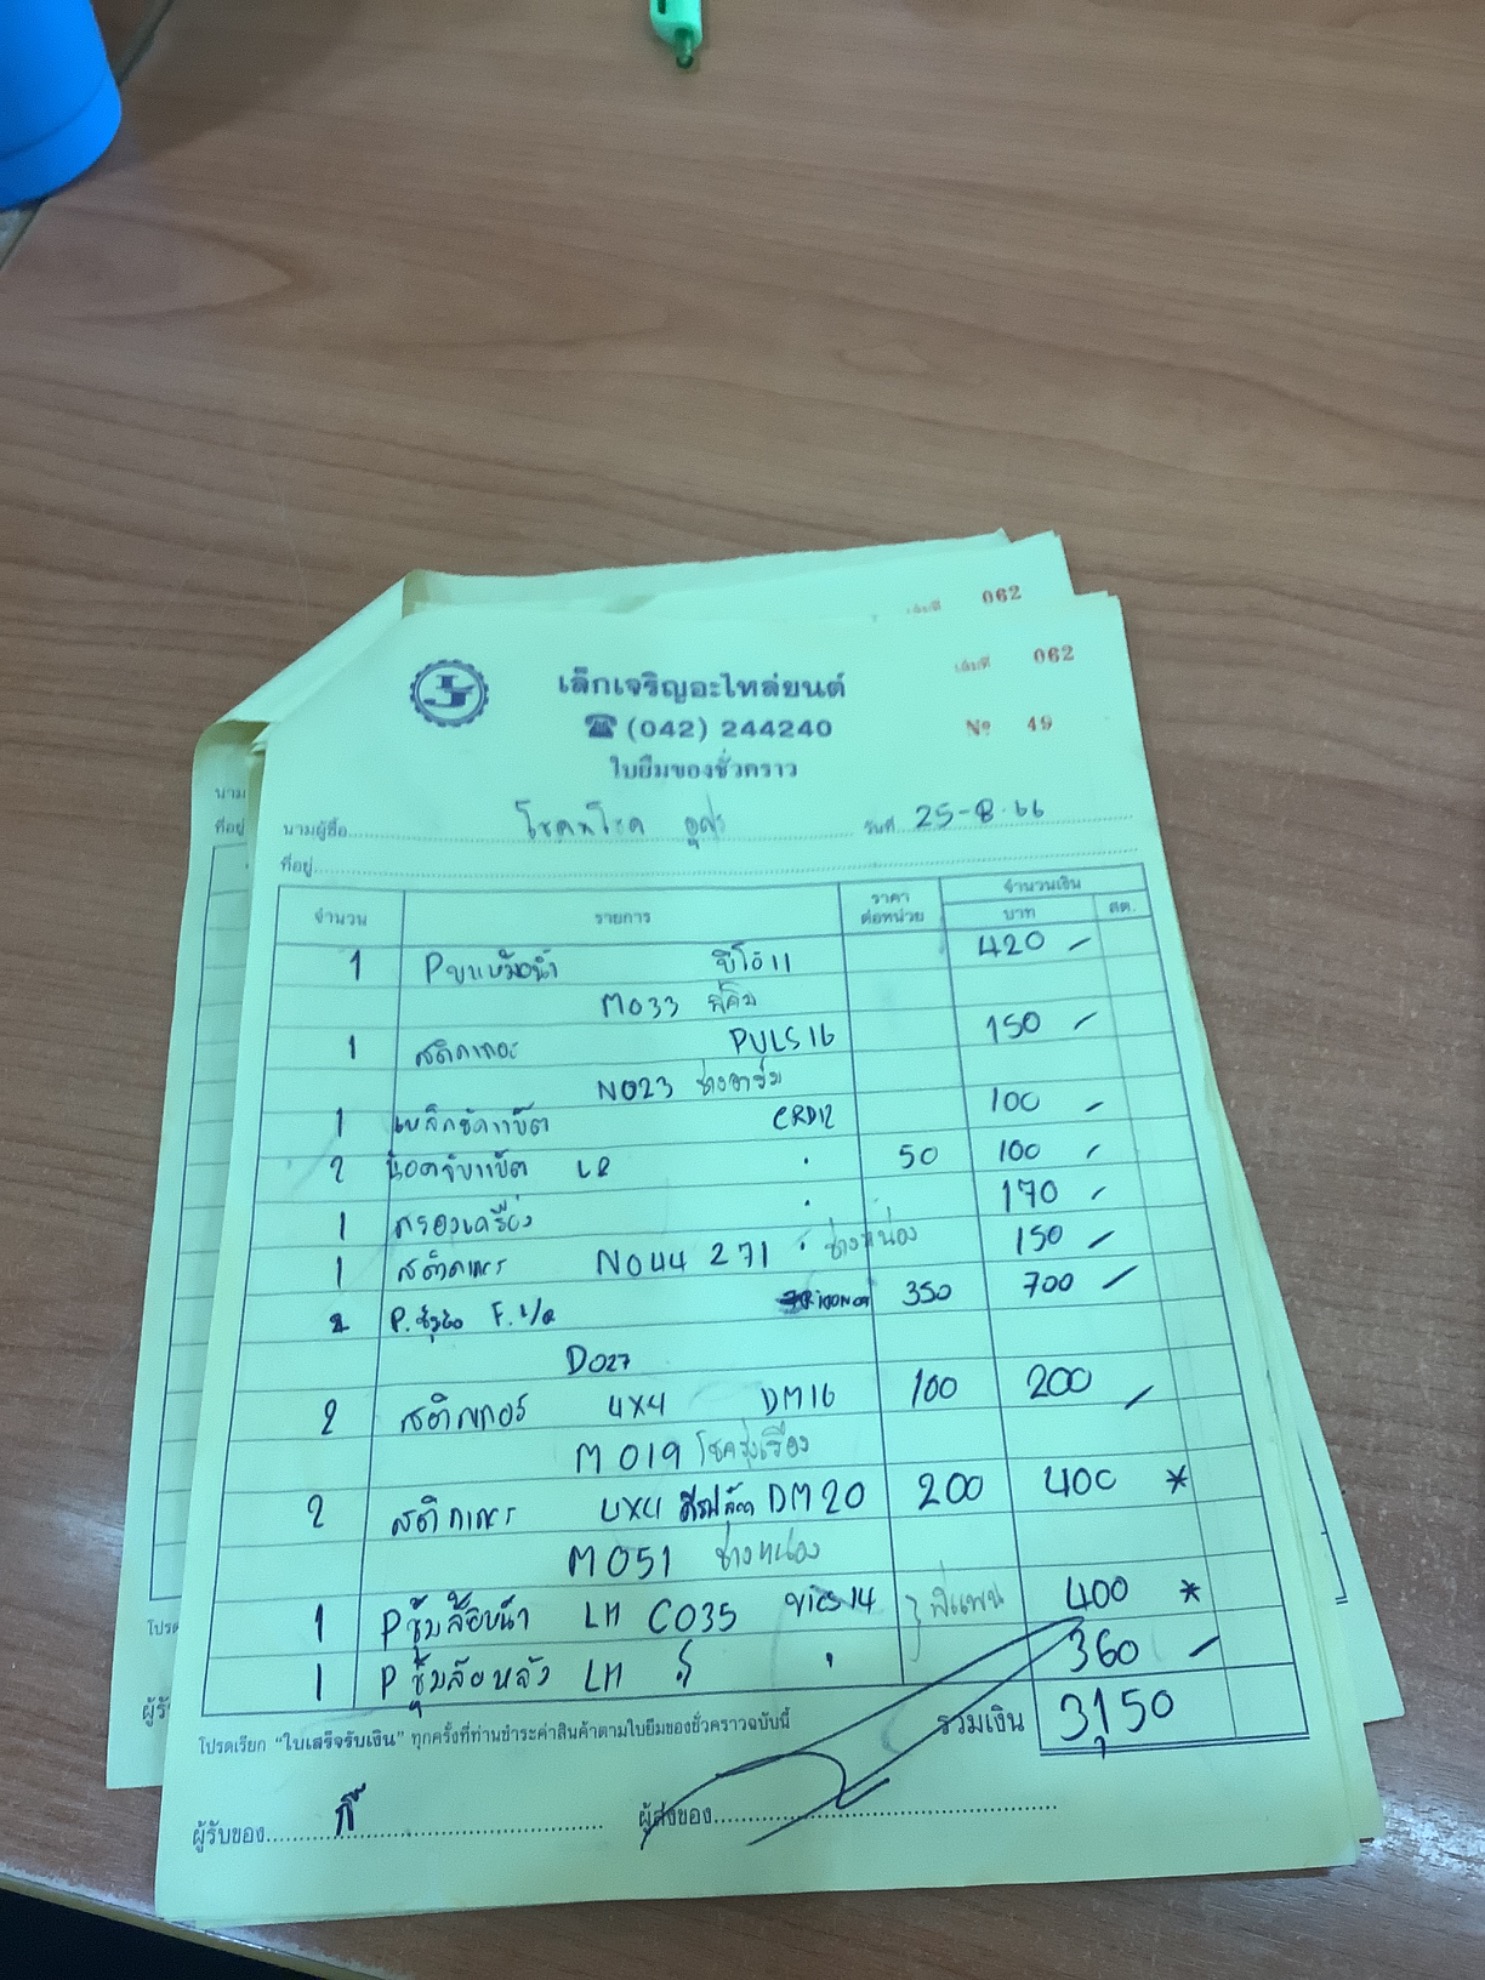 เล่มที่ 062
เล่มที่ 062
เล็กเจริญอะไหล่ยนต์
☎ (042) 244240
Nº 49
ใบยืมของชั่วคราว
นามผู้ซื้อ โชคทวีโชค อุดร วันที่ 25-8-66
ที่อยู่
จำนวน รายการ ราคาต่อหน่วย จำนวนเงิน
บาท สต.
1 P 420 -
M033
1 สติกเกอร์ PULS16 150 -
N023 ช่างอาร์ม
1 CRD12 100 -
2 LR 50 100 -
1 กรองเครื่อง 170 -
1 สติกเกอร์ N044 271 ช่างหน่อง 150 -
2 F. L/R 350 700 -
D027
2 สติกเกอร์ 4X4 DM16 100 200 -
M019 โชครุ่งเรือง
2 สติกเกอร์ 4X4 DM20 200 400 *
M051 ช่างหน่อง
1 P ซุ้มล้อหน้า LH C035 VIOS14 400 *
1 P ซุ้มล้อหลัง LH 360 -
โปรดเรียก "ใบเสร็จรับเงิน" ทุกครั้งที่ท่านชำระค่าสินค้าตามใบยืมของชั่วคราวฉบับนี้ รวมเงิน 3,150
ผู้รับของ ผู้ส่งของ
นาม
ที่อยู่